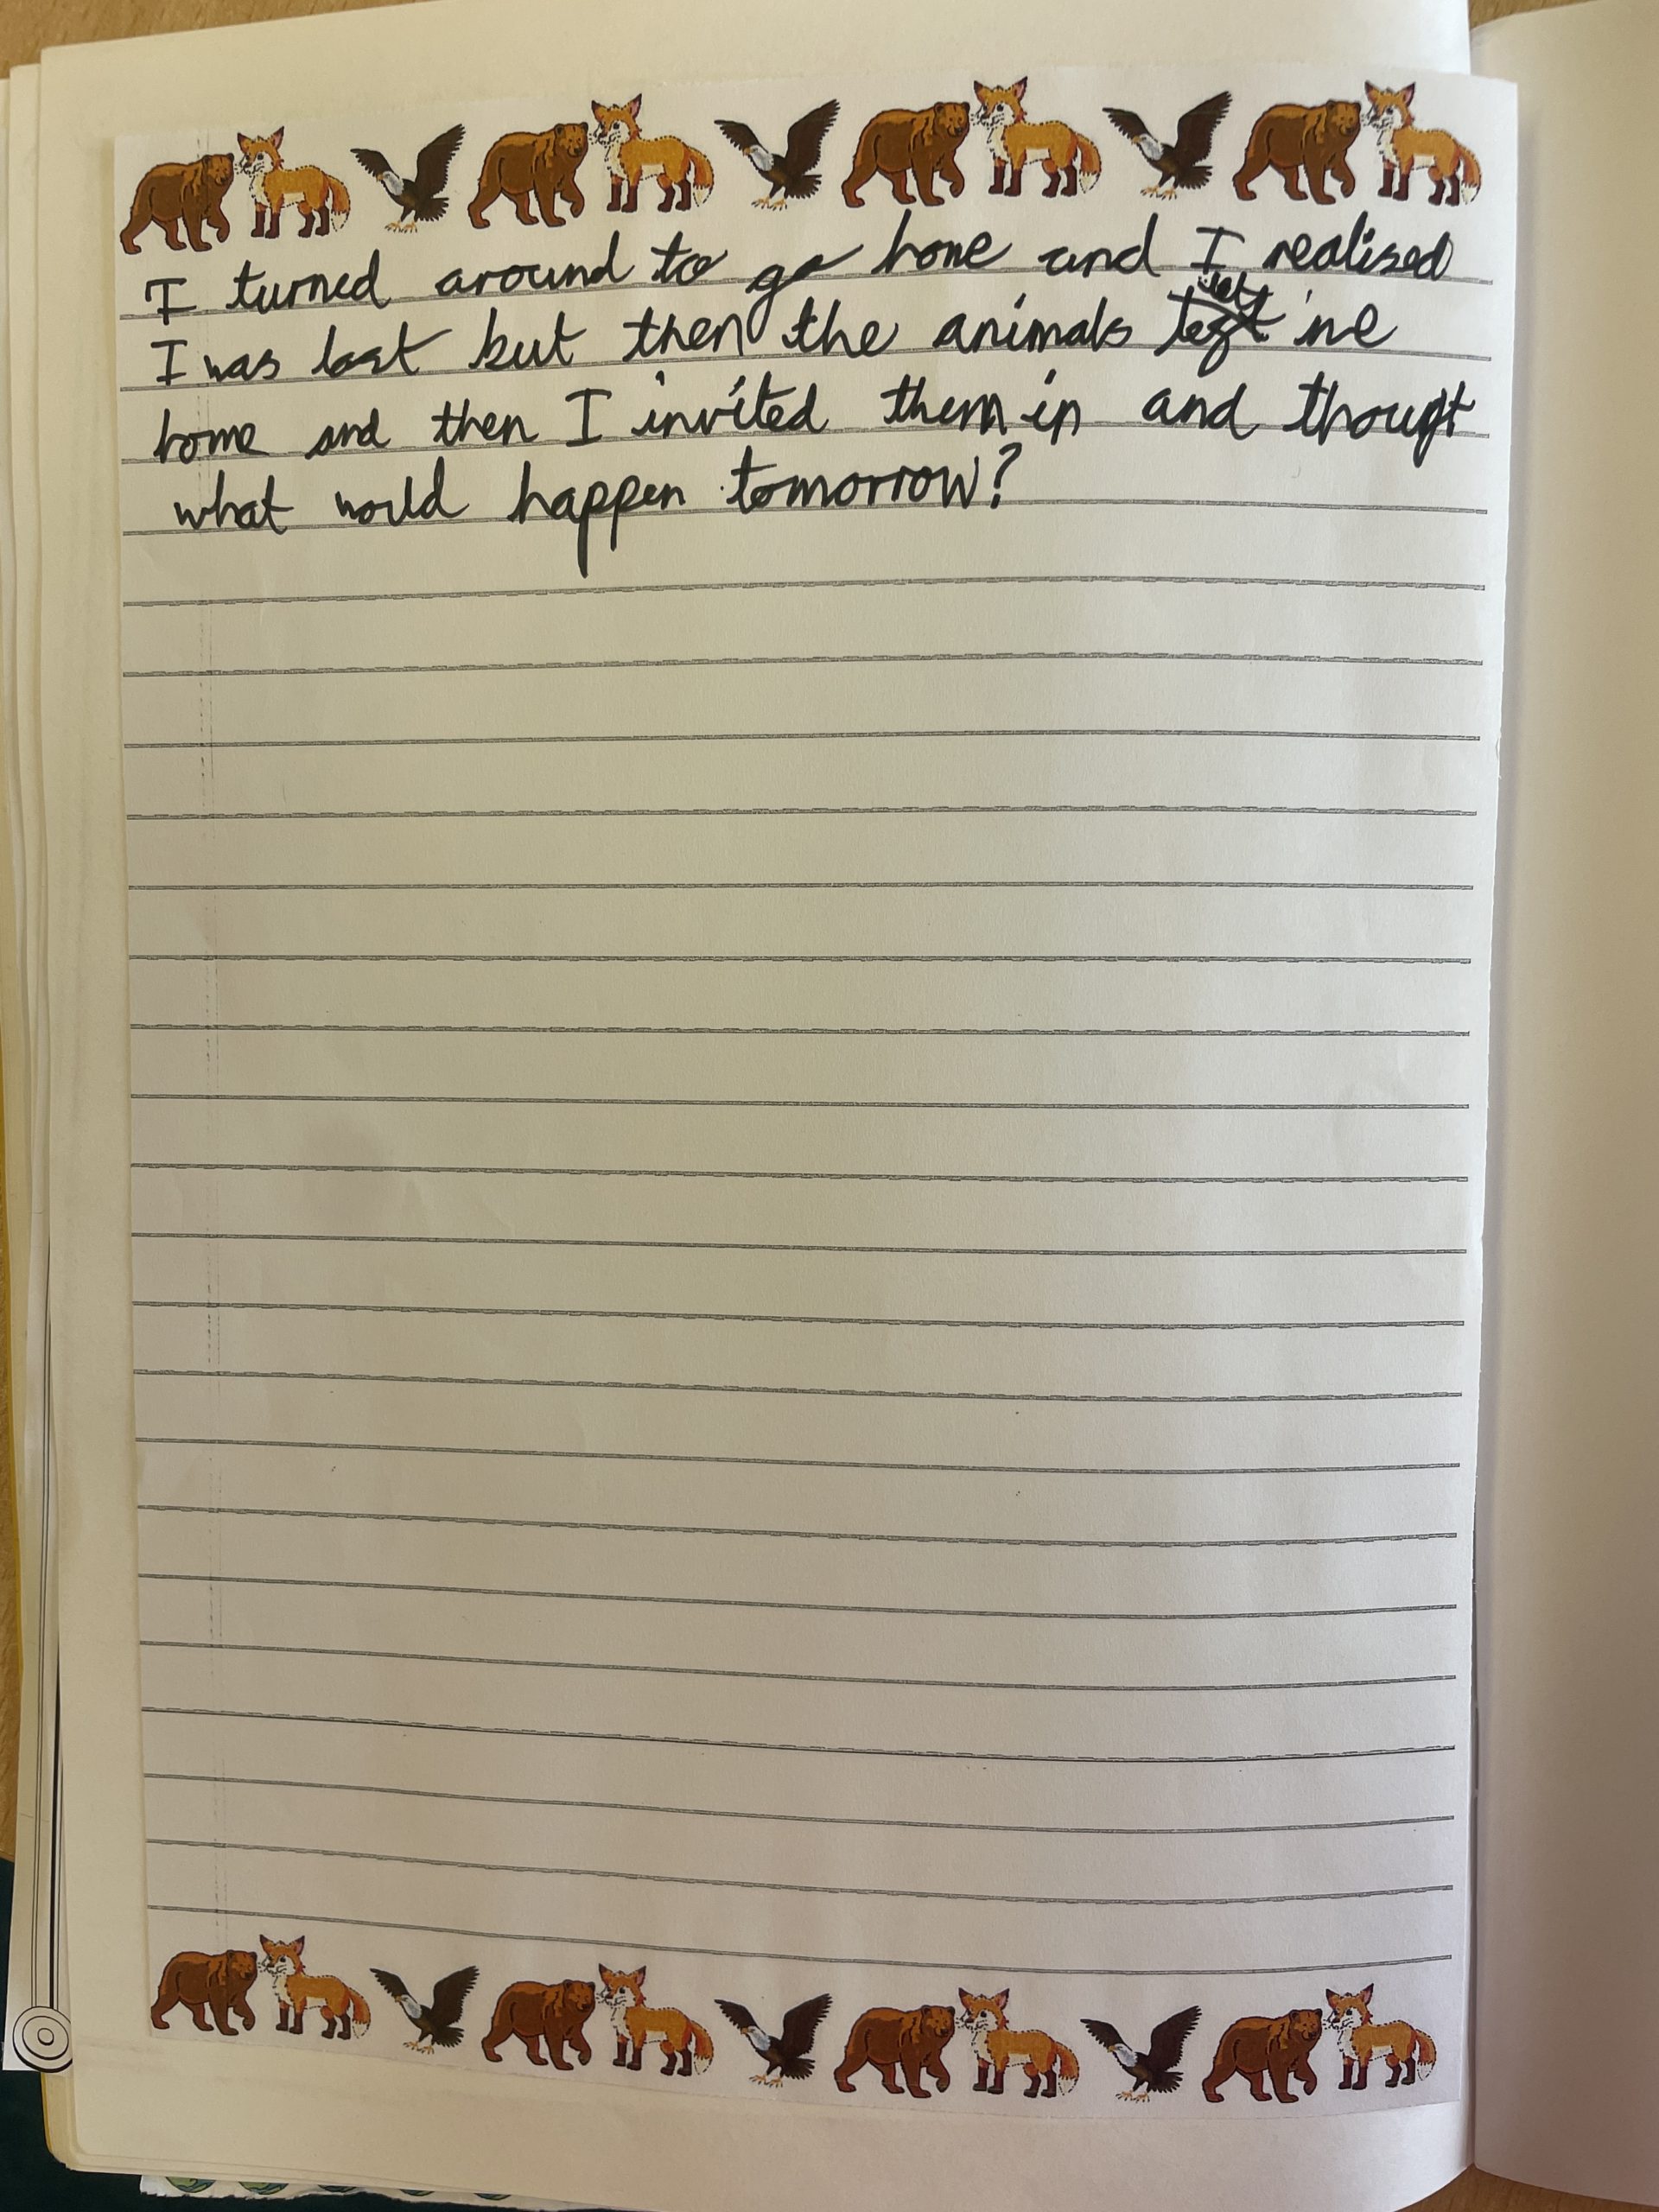 I turned around to go home and I realised
I was lost but then the animals me
home and then I invited them in and thougt
what would happen tomorrow?